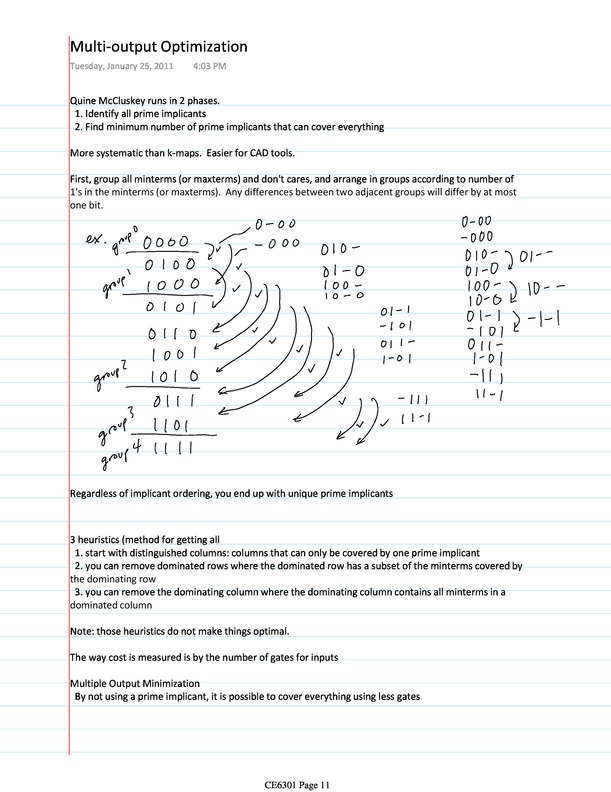 Multi-output Optimization
Tuesday, January 25, 2011 4:03 PM
Quine McCluskey runs in 2 phases.
1. Identify all prime implicants
2. Find minimum number of prime implicants that can cover everything
More systematic than k-maps. Easier for CAD tools.
First, group all minterms (or maxterms) and don't cares, and arrange in groups according to number of
1's in the minterms (or maxterms). Any differences between two adjacent groups will differ by at most
one bit.
ex. group 0 0000
group 1 0100
1000
0101
0110
1001
group 2 1010
0111
group 3 1101
group 4 1111
0-00
-000
010-
01-0
100-
10-0
01-1
-101
011-
1-01
-111
11-1
0-00
-000
010-
01-0
01--
100-
10-0
10--
01-1
-101
-1-1
011-
1-01
-111
11-1
Regardless of implicant ordering, you end up with unique prime implicants
3 heuristics (method for getting all
1. start with distinguished columns: columns that can only be covered by one prime implicant
2. you can remove dominated rows where the dominated row has a subset of the minterms covered by
the dominating row
3. you can remove the dominating column where the dominating column contains all minterms in a
dominated column
Note: those heuristics do not make things optimal.
The way cost is measured is by the number of gates for inputs
Multiple Output Minimization
By not using a prime implicant, it is possible to cover everything using less gates
CE6301 Page 11